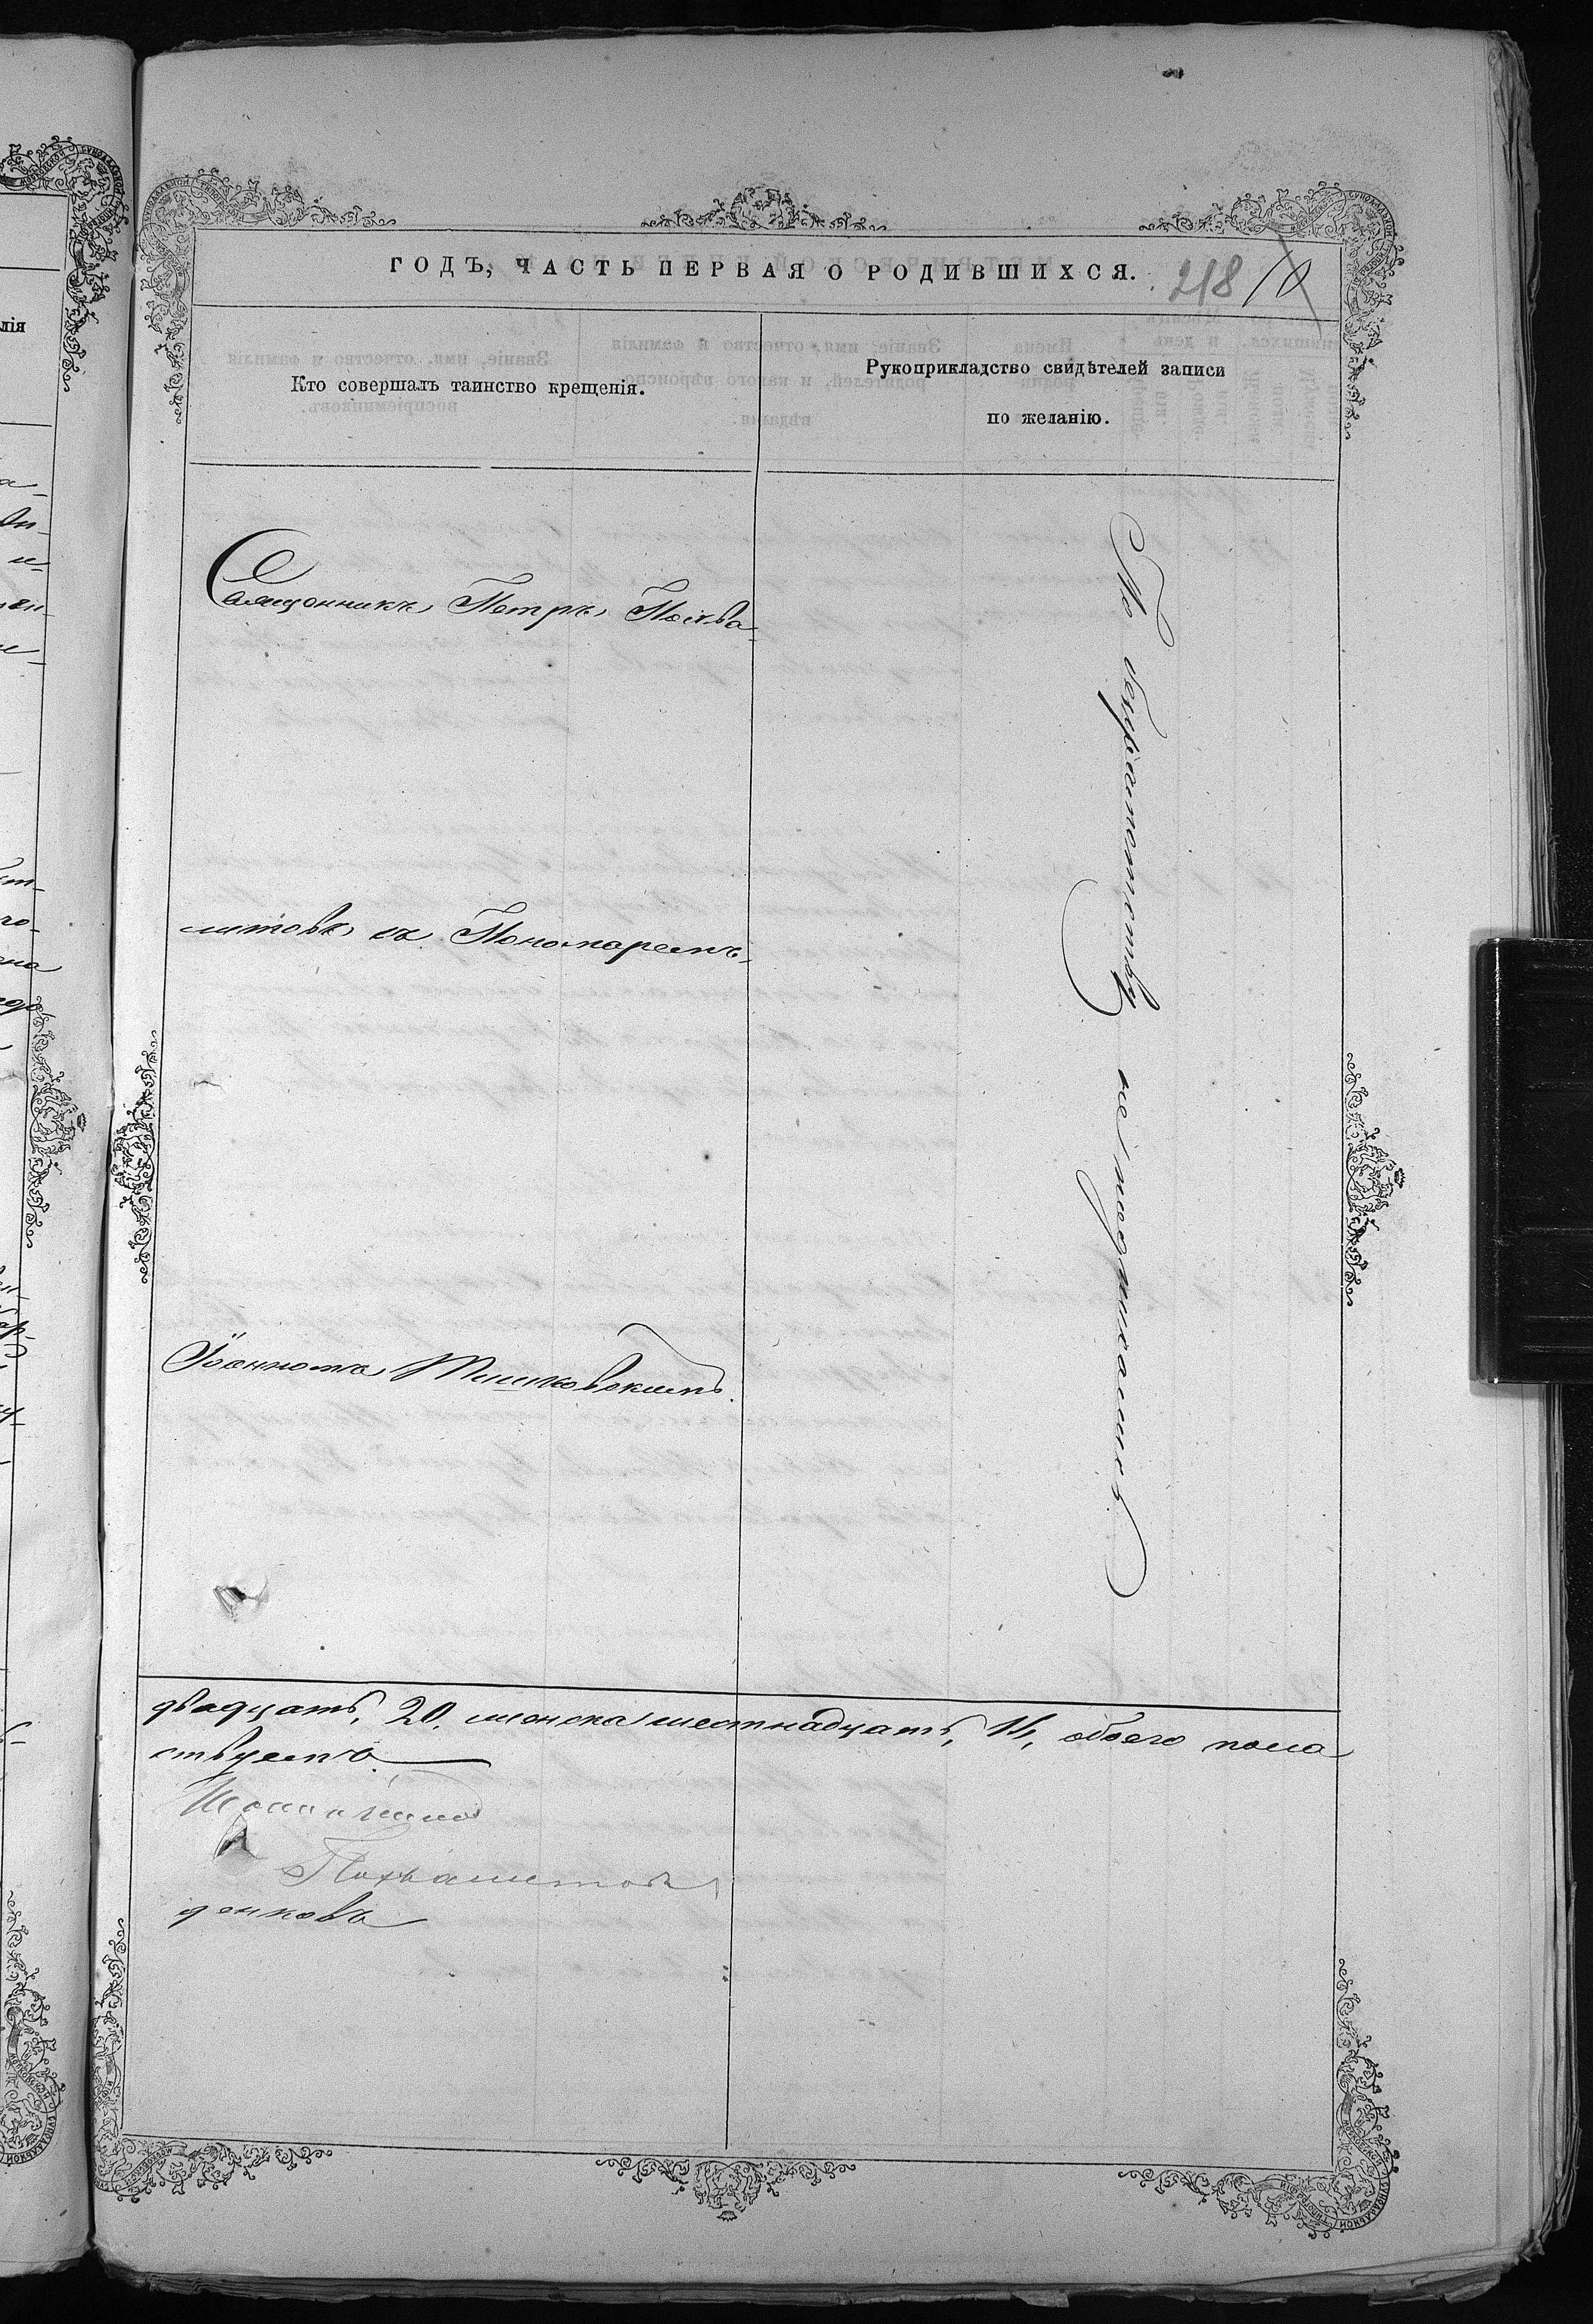 ГОДЪ, ЧАСТЬ ПЕРВАЯ О РОДИВШИХСЯ.
218 10
Кто совершалъ таинство крещенія.
Рукоприкладство свидѣтелей записи
по желанію.
Священникъ Петръ Похва-
литовъ съ Пономаремъ
Іоанномъ Тишковскимъ.
По неграмотству не подписались
двадцать, 20, женска шестнадцать, 16, обоего пола
ствуемъ.
Похвалитовъ
денковъ
лія